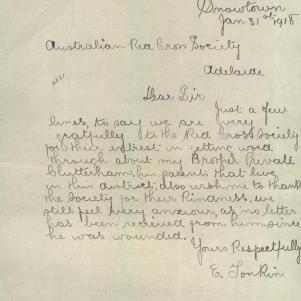 Snowtown
Jan 31st 1918
Australian Red Cross Society
Adelaide
Dear Sir
Just a few
lines, to say we are very
gratfully to the Red Cross Society
for their intrest in getting word
through about my Brother Private
Clutterham, his parents that live
in this district, also wish me to thank
the Society for their Kindness, we
still feel very anxious, as no letter
has been recieved from him since
he was wounded.
Yours Respectfully
E. Tonkin